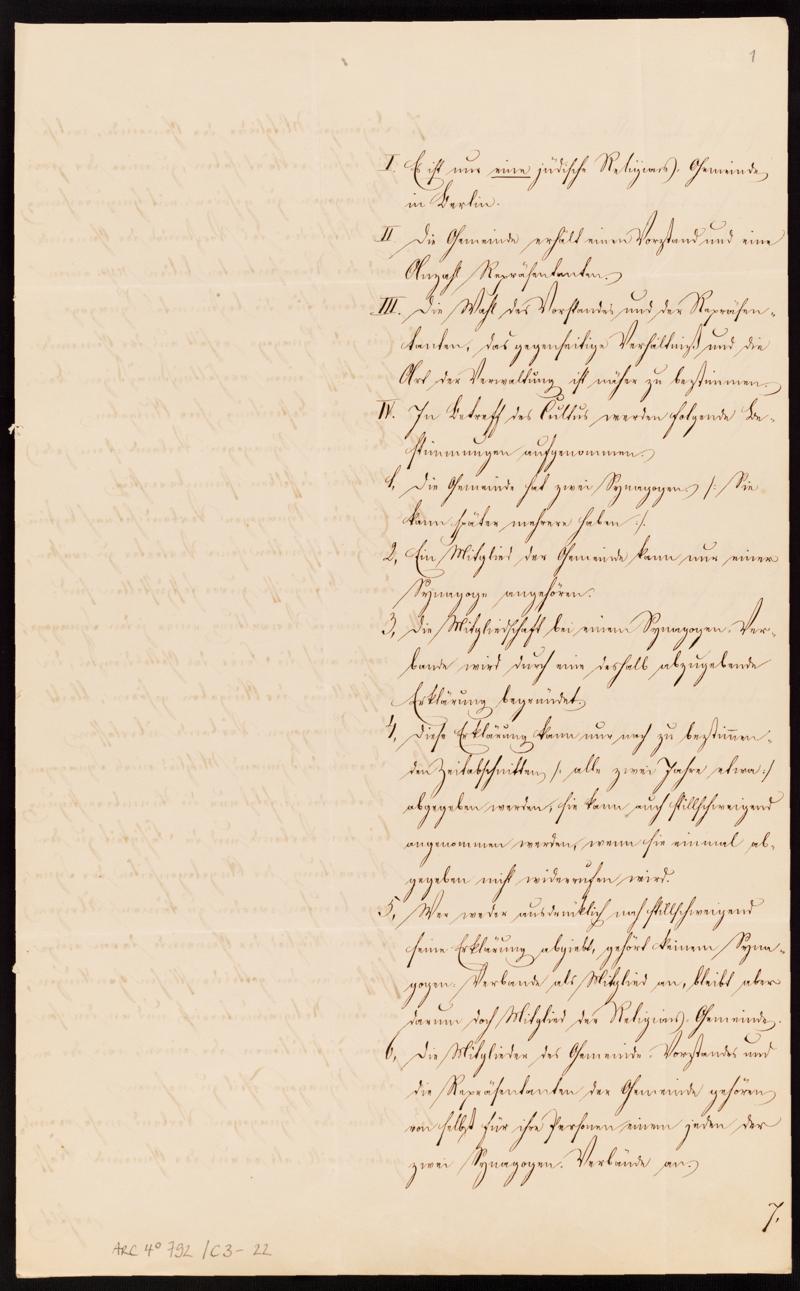 1
I. Es ist nur eine jüdische Religions-Gemeinde
in Berlin.
II Die Gemeinde erhält einen Vorstand und eine
Anzahl Repräsentanten.
III. Die Wahl des Vorstandes und der Repräsen-
tanten, das gegenseitige Verhältniß und die
Art der Verwaltung ist näher zu bestimmen.
IV. In Betreff des Cultus werden folgende Be-
stimmungen aufgenommen.
1, Die Gemeinde hat zwei Synagogen /: Sie
kann später mehrere haben :/.
2, Ein Mitglied der Gemeinde kann nur einer
Synagoge angehören.
3, Die Mitgliedschaft bei einem Synagogen-Ver-
bande wird durch eine deshalb abzugebende
Erklärung begründet.
4, Diese Erklärung kann nur nach zu bestim̅en-
den Zeitabschnitten /: alle zwei Jahre etwa :/
abgegeben werden, sie kann auch stillschweigend
angenommen werden, wenn sie einmal ab-
gegeben nicht widerrufen wird.
5, Wer weder ausdrücklich noch stillschweigend
seine Erklärung abgiebt, gehört keinem Syna-
gogen-Verbande als Mitglied an, bleibt aber
darum doch Mitglied der Religions-Gemeinde.
6, Die Mitglieder des Gemeinde-Vorstandes und
die Repräsentanten der Gemeinde gehören
von selbst für ihre Personen einem jeden der
zwei Synagogen-Verbände an.
7,
ARC 4° 792 /C3-22